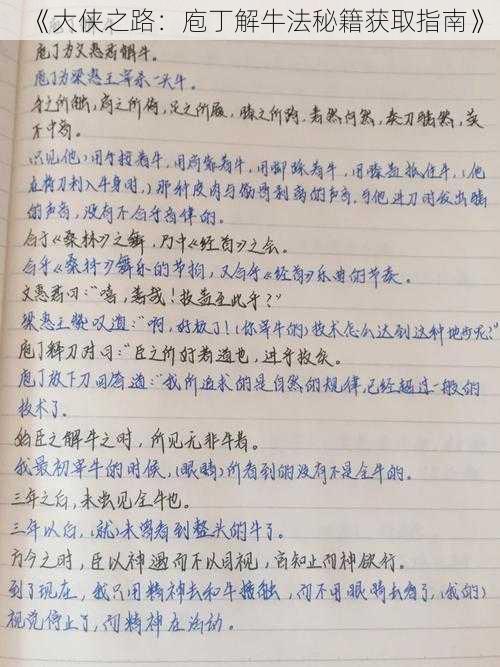 《大侠之路：庖丁解牛法秘籍获取指南》
庖丁为文惠君解牛。
庖丁为梁惠王宰杀一头牛。
手之所触，肩之所倚，足之所履，膝之所踦，砉然向然，奏刀騞然，莫
不中音。
（只见他）用手按着牛，用肩靠着牛，用脚踩着牛，用膝盖抵住牛，（他
在将刀刺入牛身时，）那种皮肉与骨骼剥离的声音，与他进刀时发出騞
的声音，没有不合乎音律的。
合于《桑林》之舞，乃中《经首》之会。
合乎《桑林》舞乐的节拍，又合乎《经首》乐曲的节奏。
文惠君曰：“嘻，善哉！技盖至此乎？”
梁惠王赞叹道：“啊，好极了！（你宰牛的）技术怎么达到这种地步呢？”
庖丁释刀对曰：“臣之所好者道也，进乎技矣。
庖丁放下刀回答道：“我所追求的是自然的规律，已经超过一般的
技术了。
始臣之解牛之时，所见无非牛者。
我最初宰牛的时候，（眼睛）所看到的没有不是全牛的。
三年之后，未尝见全牛也。
三年以后，（就）未尝看到整头的牛了。
方今之时，臣以神遇而不以目视，官知止而神欲行。
到了现在，我只用精神去和牛接触，而不用眼睛去看了，（我的）
视觉停止了，而精神在活动。